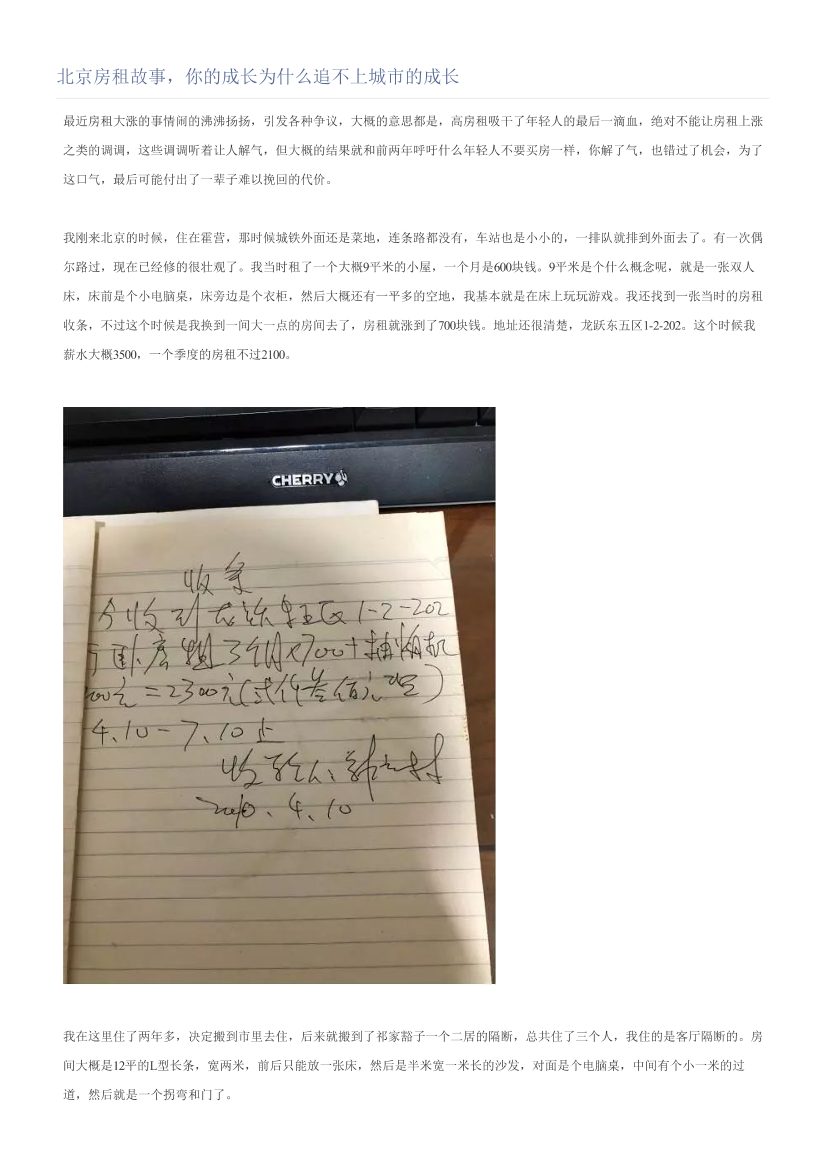 北京房租故事，你的成长为什么追不上城市的成长
最近房租大涨的事情闹的沸沸扬扬，引发各种争议，大概的意思都是，高房租吸干了年轻人的最后一滴血，绝对不能让房租上涨
之类的调调，这些调调听着让人解气，但大概的结果就和前两年呼吁什么年轻人不要买房一样，你解了气，也错过了机会，为了
这口气，最后可能付出了一辈子难以挽回的代价。
我刚来北京的时候，住在霍营，那时候城铁外面还是菜地，连条路都没有，车站也是小小的，一排队就排到外面去了。有一次偶
尔路过，现在已经修的很壮观了。我当时租了一个大概9平米的小屋，一个月是600块钱。9平米是个什么概念呢，就是一张双人
床，床前是个小电脑桌，床旁边是个衣柜，然后大概还有一平多的空地，我基本就是在床上玩玩游戏。我还找到一张当时的房租
收条，不过这个时候是我换到一间大一点的房间去了，房租就涨到了700块钱。地址还很清楚，龙跃东五区1-2-202。这个时候我
薪水大概3500，一个季度的房租不过2100。
CHERRY
收条
今收到龙跃东五区1-2-202
卧房租3个月x700+
00元=2300元(贰仟叁佰元整)
4.10-7.10止
收款人:
2010.4.10
我在这里住了两年多，决定搬到市里去住，后来就搬到了祁家豁子一个二居的隔断，总共住了三个人，我住的是客厅隔断的。房
间大概是12平的L型长条，宽两米，前后只能放一张床，然后是半米宽一米长的沙发，对面是个电脑桌，中间有个小一米的过
道，然后就是一个拐弯和门了。